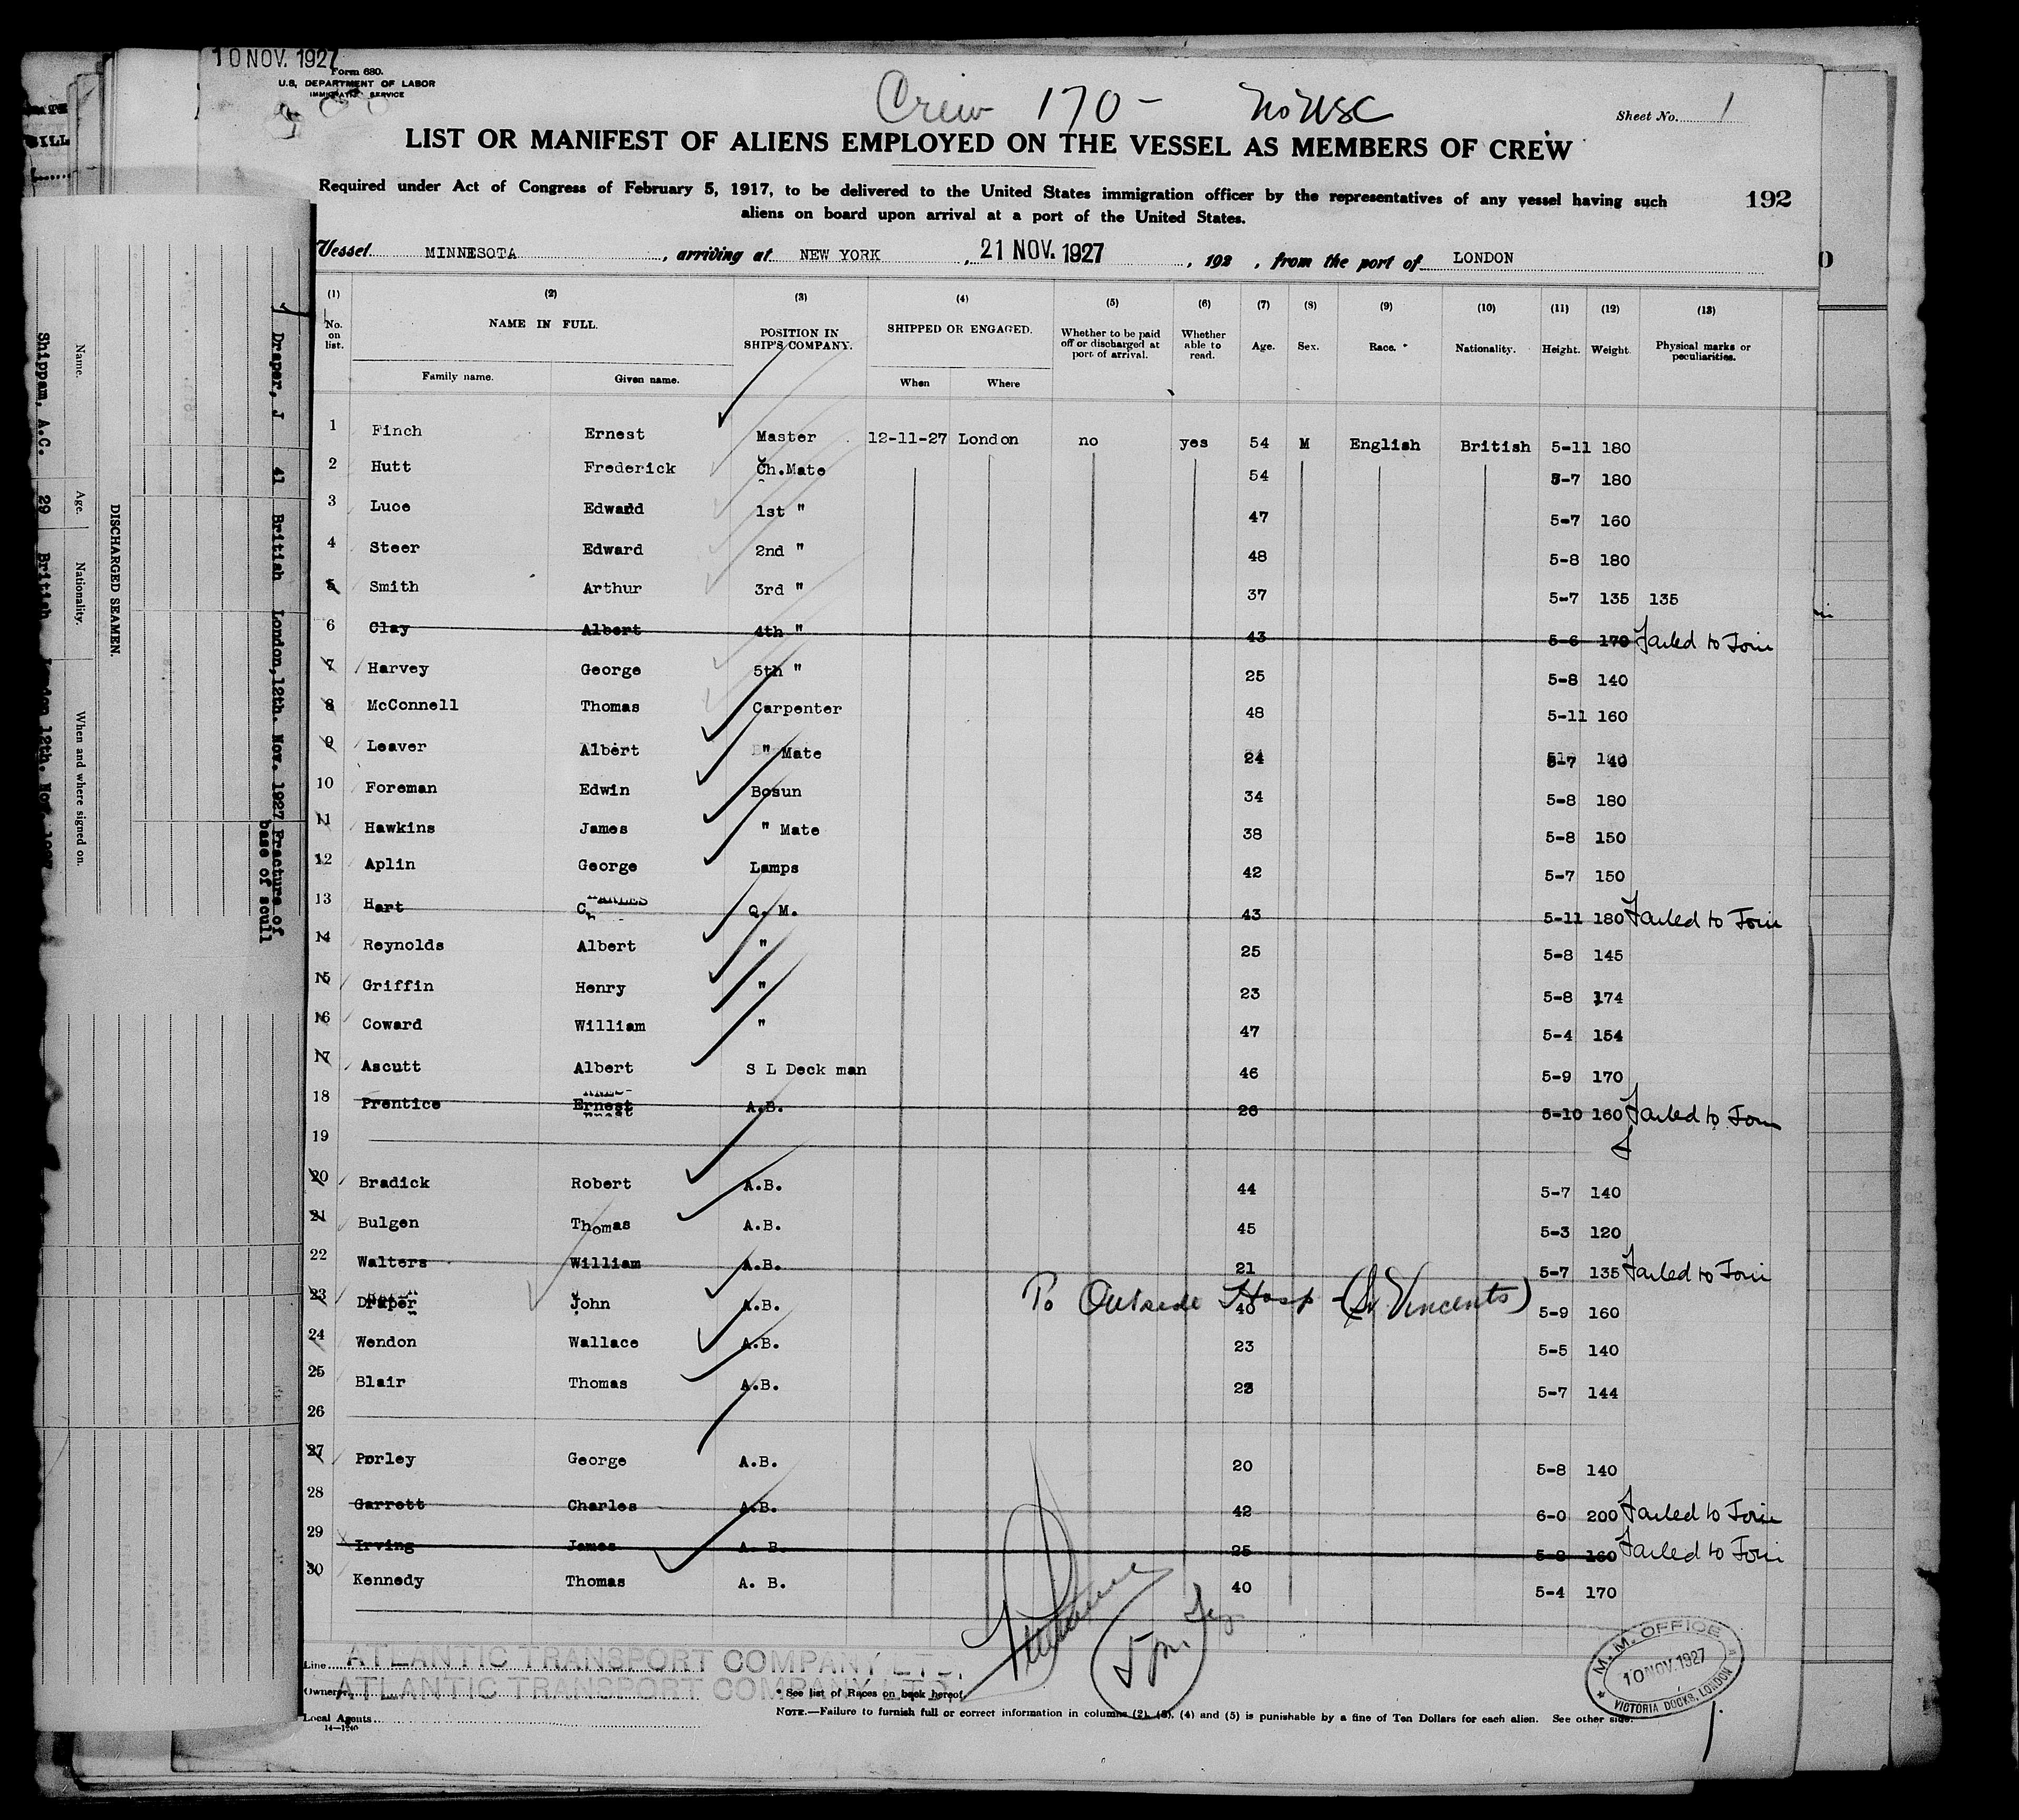 10 NOV. 1927
Form 680.
U.S. DEPARTMENT OF LABOR
IMMIGRATION SERVICE
Crew 170 - No USC
Sheet No. 1
LIST OR MANIFEST OF ALIENS EMPLOYED ON THE VESSEL AS MEMBERS OF CREW
Required under Act of Congress of February 5, 1917, to be delivered to the United States immigration officer by the representatives of any vessel having such
aliens on board upon arrival at a port of the United States.
192
Vessel MINNESOTA, arriving at NEW YORK, 21 NOV. 1927, 192 , from the port of LONDON
(1) (2) (3) (4) (5) (6) (7) (8) (9) (10) (11) (12) (13)
No. on list. NAME IN FULL. POSITION IN SHIP'S COMPANY. SHIPPED OR ENGAGED. Whether to be paid off or discharged at port of arrival. Whether able to read. Age. Sex. Race. * Nationality. Height. Weight. Physical marks or peculiarities.
Family name. Given name. When Where
1 Finch Ernest Master 12-11-27 London no yes 54 M English British 5-11 180
2 Hutt Frederick Ch.Mate 54 5-7 180
3 Luce Edward 1st " 47 5-7 160
4 Steer Edward 2nd " 48 5-8 180
5 Smith Arthur 3rd " 37 5-7 135 135
6 Clay Albert 4th " 43 5-6 170 Failed to Join
7 Harvey George 5th " 25 5-8 140
8 McConnell Thomas Carpenter 48 5-11 160
9 Leaver Albert " Mate 24 5-7 140
10 Foreman Edwin Bosun 34 5-8 180
11 Hawkins James " Mate 38 5-8 150
12 Aplin George Lamps 42 5-7 150
13 Hart CHARLES Q. M. 43 5-11 180 Failed to Join
14 Reynolds Albert " 25 5-8 145
15 Griffin Henry " 23 5-8 174
16 Coward William " 47 5-4 154
17 Ascutt Albert S L Deck man 46 5-9 170
18 Prentice Ernest A.B. 26 5-10 160 Failed to Join
19
20 Bradick Robert A.B. 44 5-7 140
21 Bulgen Thomas A.B. 45 5-3 120
22 Walters William A.B. 21 5-7 135 Failed to Join
23 Draper John A.B. 40 5-9 160
To Outside Hosp - (St Vincents)
24 Wendon Wallace A.B. 23 5-5 140
25 Blair Thomas A.B. 5-7 144
26
27 Porley George A.B. 20 5-8 140
28 Garrett Charles A.B. 42 6-0 200 Failed to Join
29 Irving James A. B. 25 5-8 160 Failed to Join
30 Kennedy Thomas A. B. 40 5-4 170
Line ATLANTIC TRANSPORT COMPANY LTD.
Owners ATLANTIC TRANSPORT COMPANY LTD.
Local Agents
14-1240
* See list of Races on back hereof.
NOTE.—Failure to furnish full or correct information in columns (2), (3), (4) and (5) is punishable by a fine of Ten Dollars for each alien. See other side.
M.M. OFFICE
10 NOV. 1927
VICTORIA DOCKS, LONDON
DISCHARGED SEAMEN.
Name. Age. Nationality. When and where signed on.
Shippam, A.C. 29 British London 12th. Nov. 1927
Draper, J 41 British London, 12th. Nov. 1927 Fracture of
base of scull